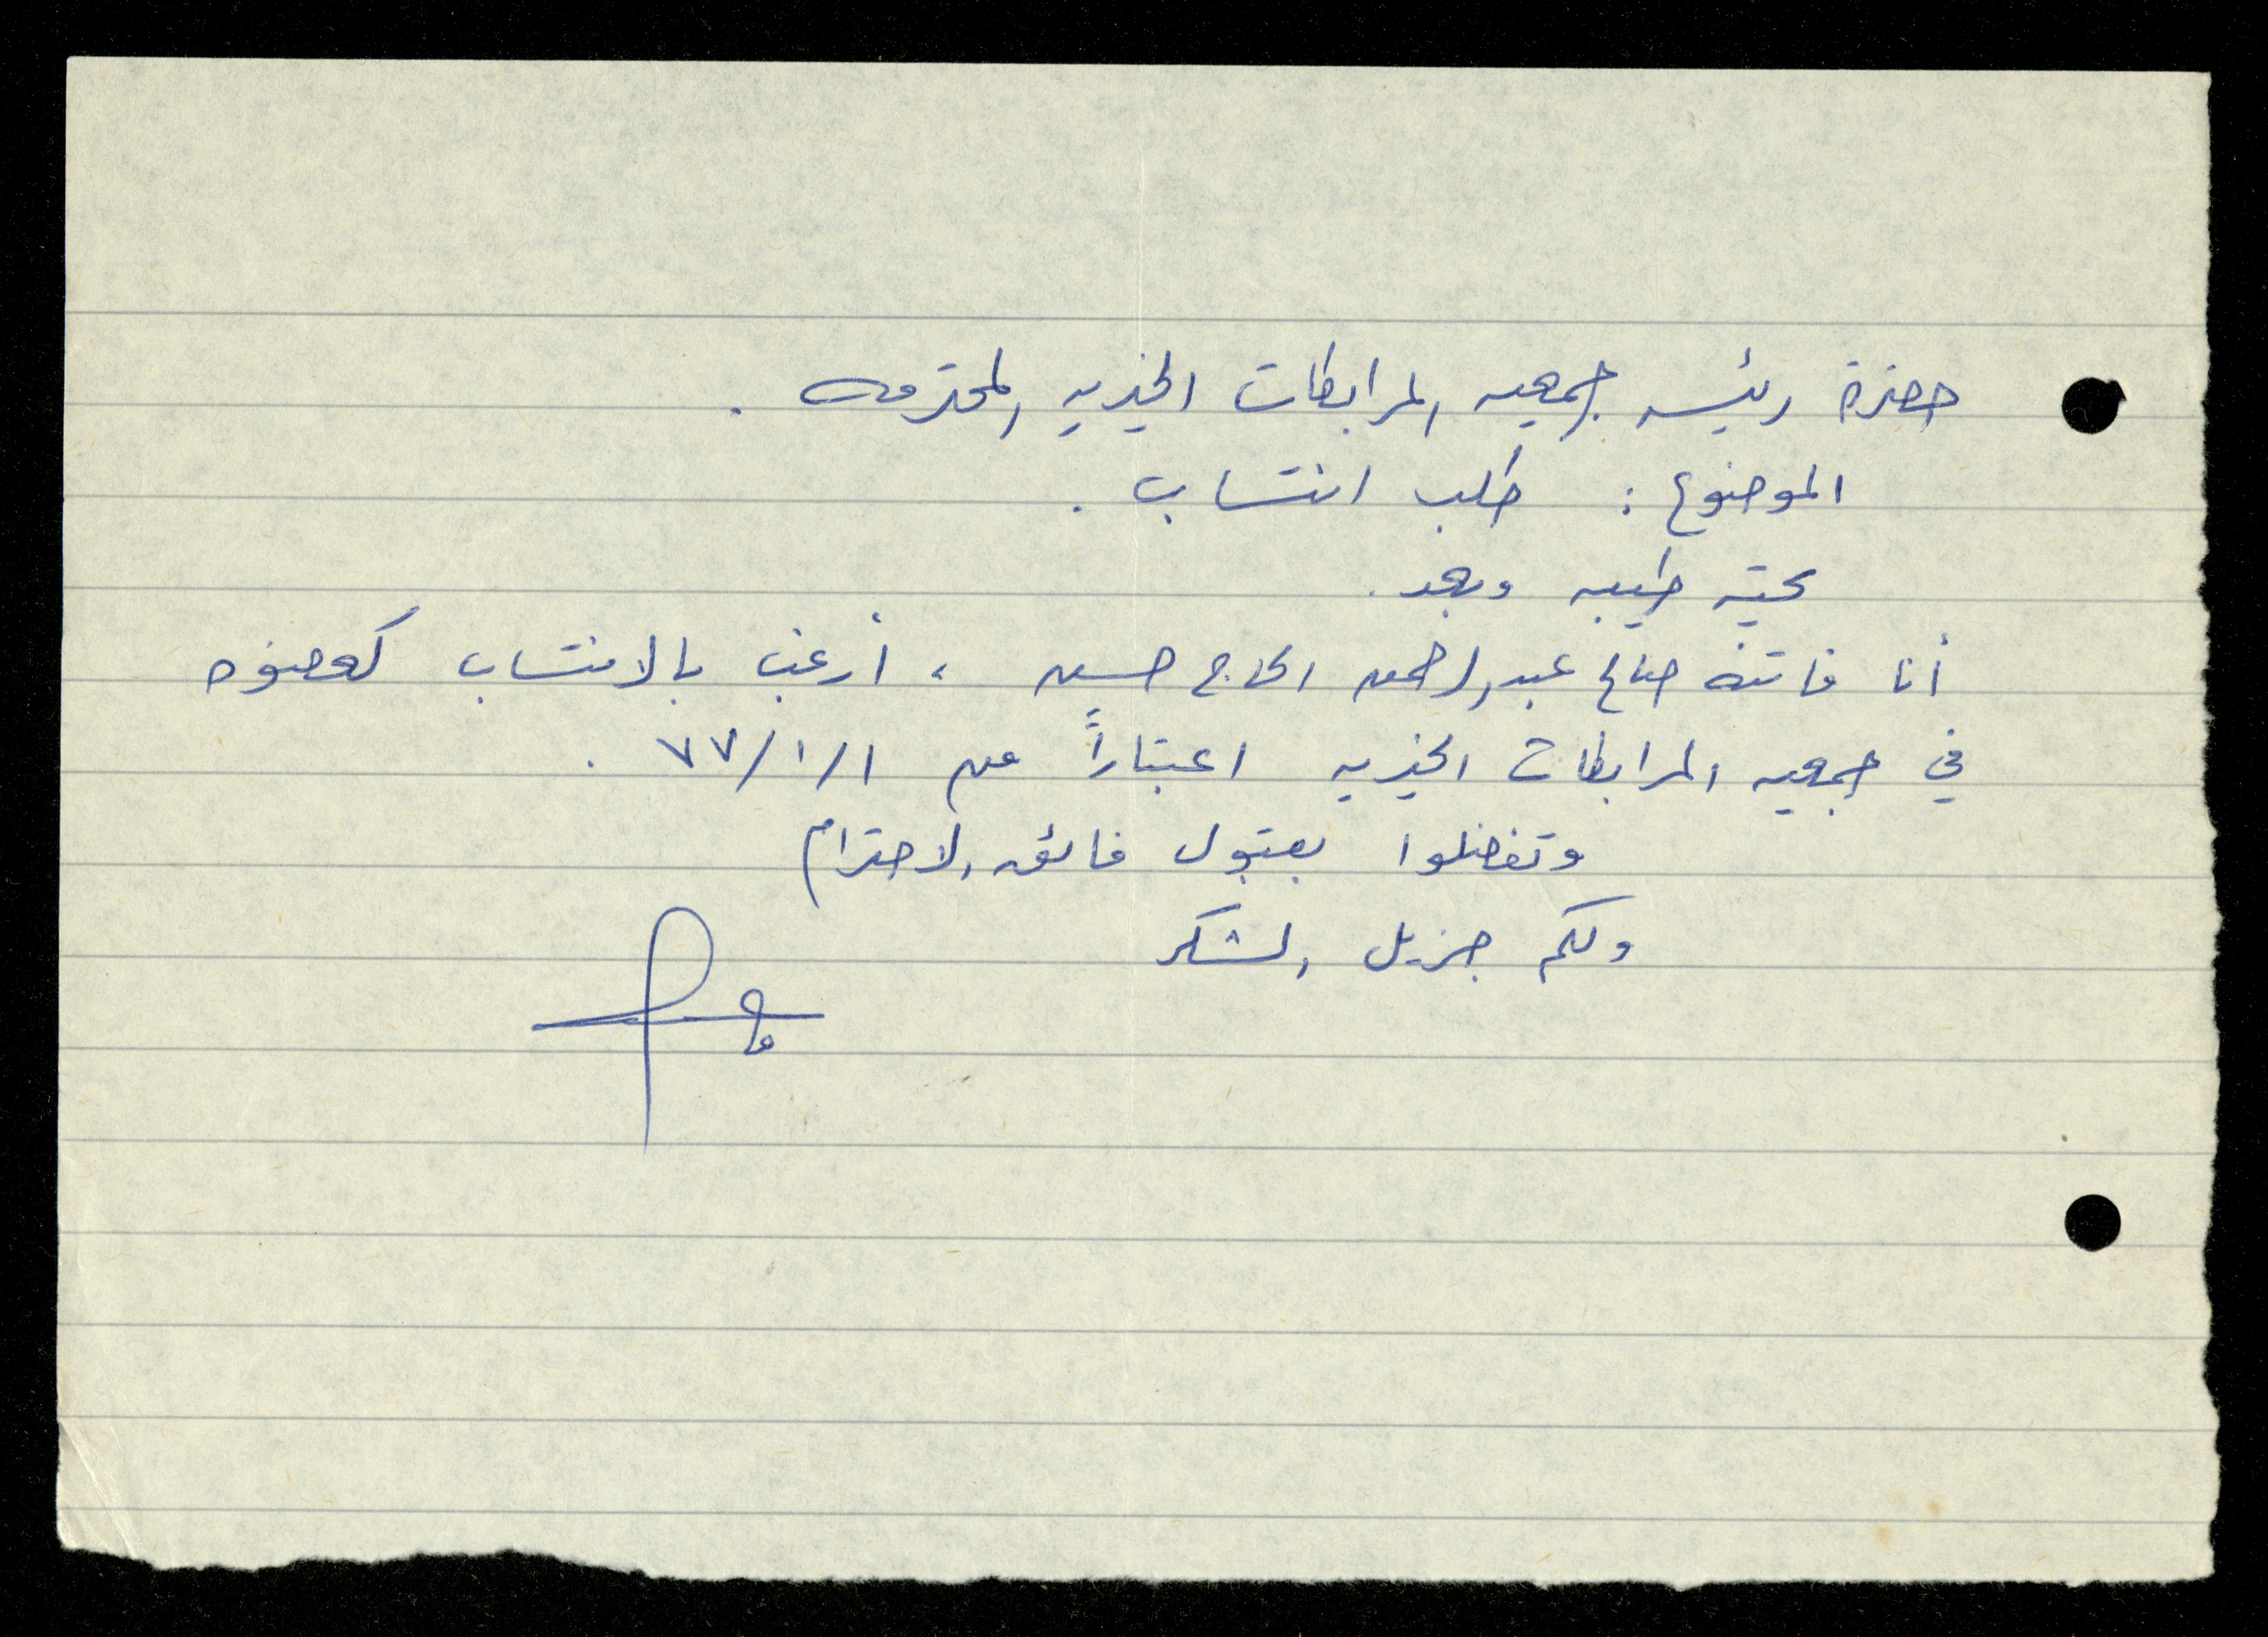 حضرة رئيسه جمعيه المرابطات الخيريه المحترمه .
الموضوع : طلب انتساب .
تحيه طيبه وبعد .
أنا فاتنه صالح عبد الرحمن الحاج حسين ، أرغب بالانتساب كعضوه
في جمعيه المرابطات الخيريه اعتباراً من ١/١/٧٧ .
وتفضلوا بقبول فائق الاحترام
ولكم جزيل الشكر